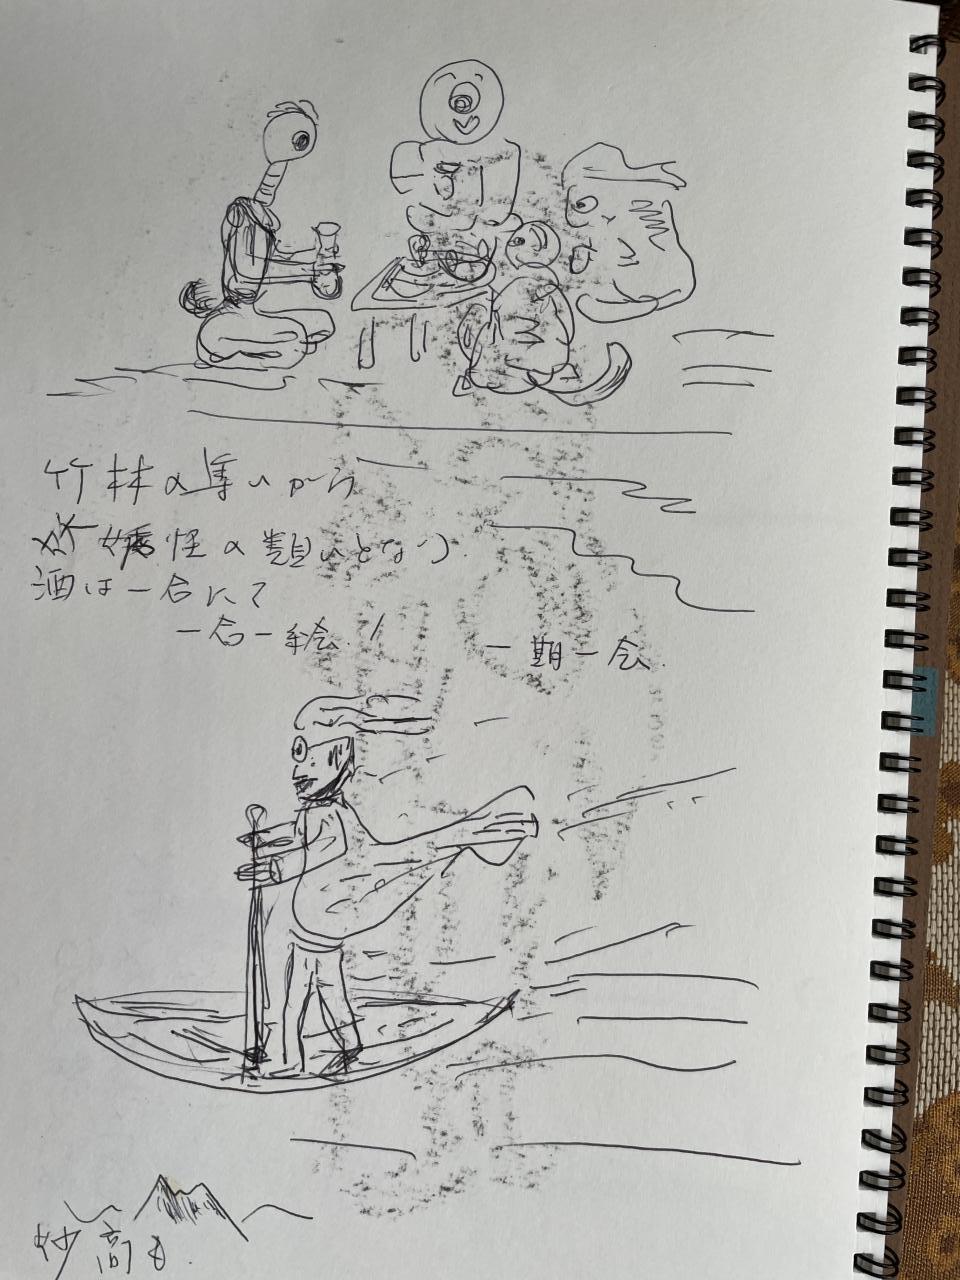 竹林の集いから
妖怪の類いとなり
酒は一合にて
一合一絵!
一期一会.
妙高も.